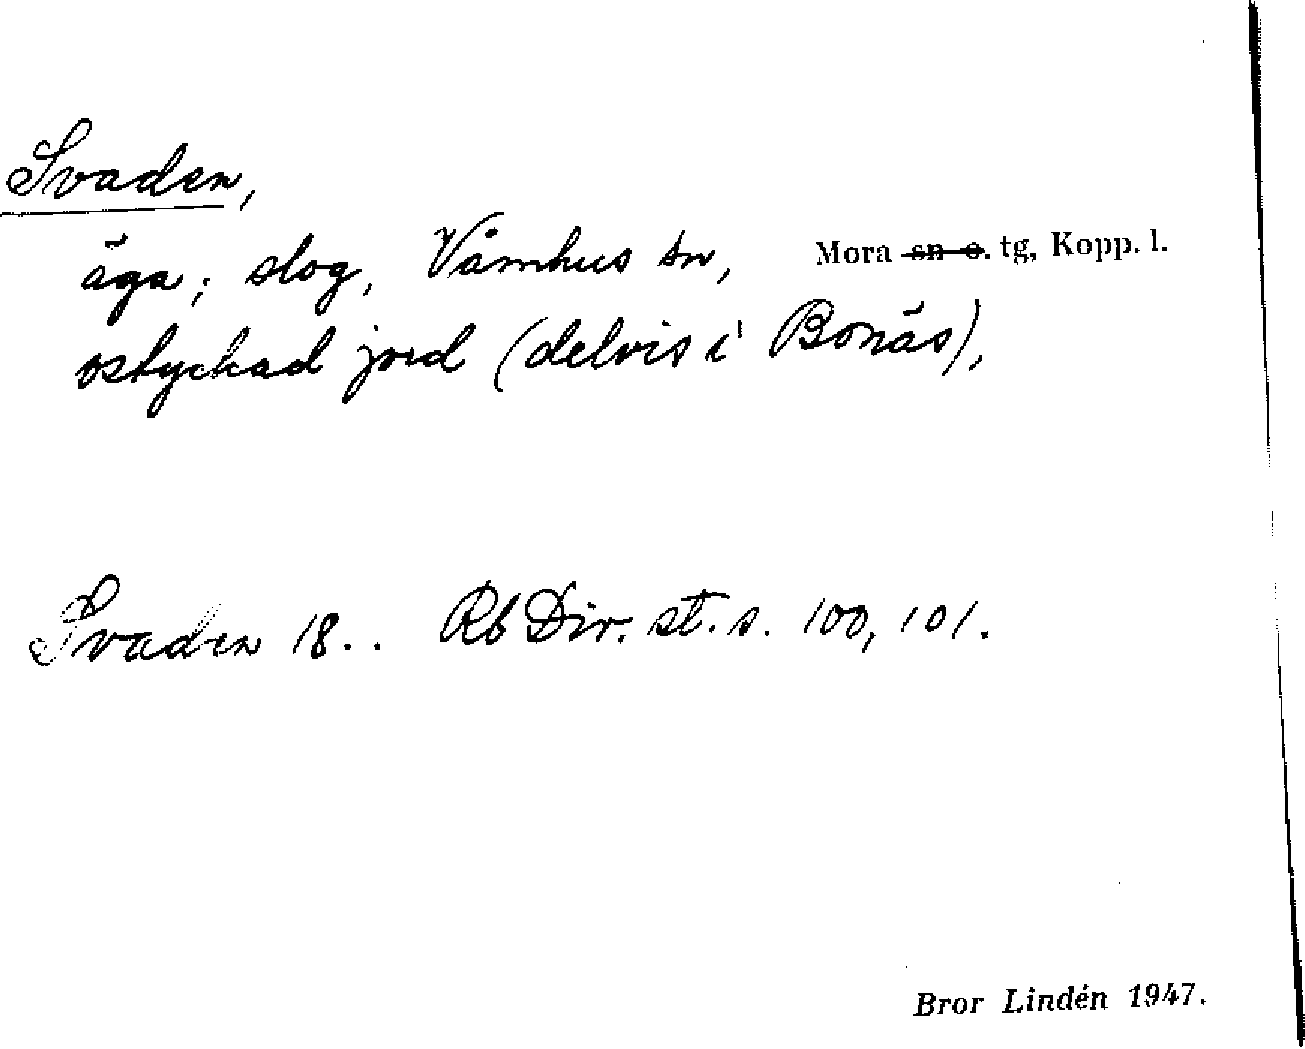 Svaden,
äga; slog, Våmhus sn, Mora sn o. tg, Kopp. l.
ostyckad jord (delvis i Bonäs),
Svaden 18.. Rb Div. st. s. 100, 101.
Bror Lindén 1947.